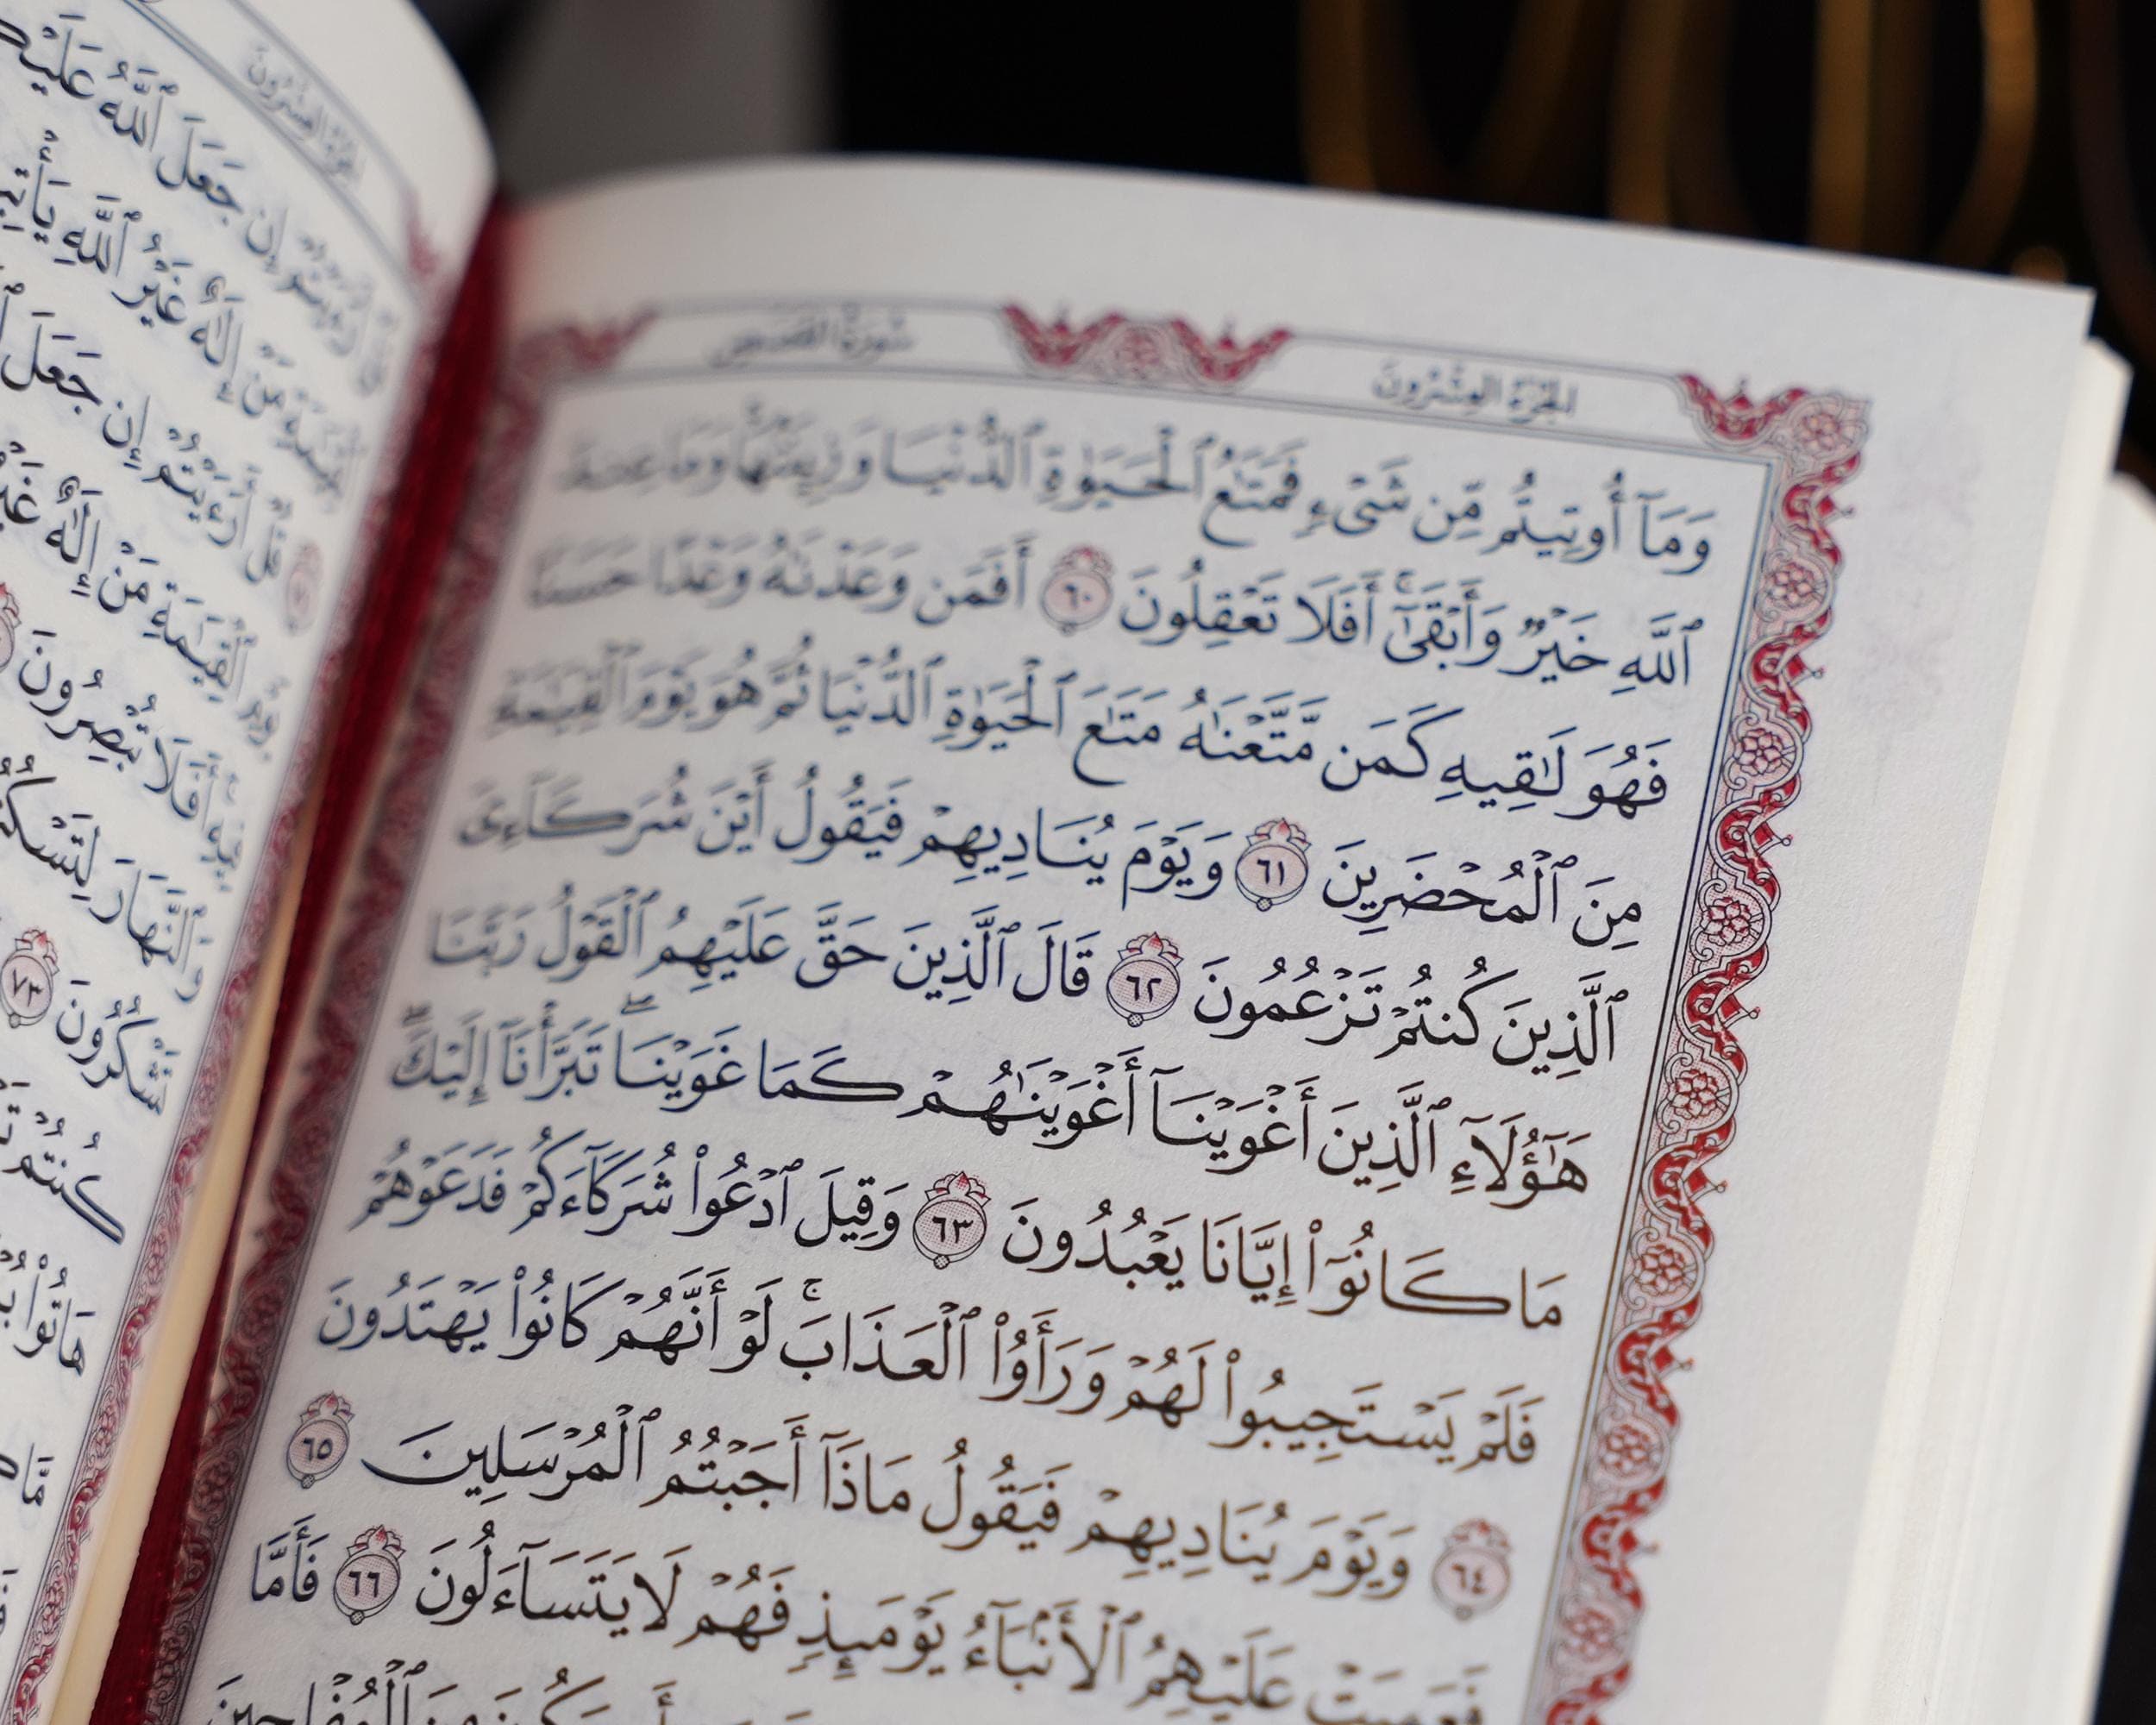 الجزء العشرون
سورة القصص
وَمَآ أُوتِيتُم مِّن شَىْءٍ فَمَتَٰعُ ٱلْحَيَوٰةِ ٱلدُّنْيَا وَزِينَتُهَا وَمَا عِندَ
ٱللَّهِ خَيْرٌ وَأَبْقَىٰٓ ۚ أَفَلَا تَعْقِلُونَ ٦٠ أَفَمَن وَعَدْنَٰهُ وَعْدًا حَسَنًا
فَهُوَ لَٰقِيهِ كَمَن مَّتَّعْنَٰهُ مَتَٰعَ ٱلْحَيَوٰةِ ٱلدُّنْيَا ثُمَّ هُوَ يَوْمَ ٱلْقِيَٰمَةِ
مِنَ ٱلْمُحْضَرِينَ ٦١ وَيَوْمَ يُنَادِيهِمْ فَيَقُولُ أَيْنَ شُرَكَآءِىَ
ٱلَّذِينَ كُنتُمْ تَزْعُمُونَ ٦٢ قَالَ ٱلَّذِينَ حَقَّ عَلَيْهِمُ ٱلْقَوْلُ رَبَّنَا
هَٰٓؤُلَآءِ ٱلَّذِينَ أَغْوَيْنَآ أَغْوَيْنَٰهُمْ كَمَا غَوَيْنَا ۖ تَبَرَّأْنَآ إِلَيْكَ ۖ
مَا كَانُوٓا۟ إِيَّانَا يَعْبُدُونَ ٦٣ وَقِيلَ ٱدْعُوا۟ شُرَكَآءَكُمْ فَدَعَوْهُمْ
فَلَمْ يَسْتَجِيبُوا۟ لَهُمْ وَرَأَوُا۟ ٱلْعَذَابَ ۚ لَوْ أَنَّهُمْ كَانُوا۟ يَهْتَدُونَ
٦٤ وَيَوْمَ يُنَادِيهِمْ فَيَقُولُ مَاذَآ أَجَبْتُمُ ٱلْمُرْسَلِينَ ٦٥
فَعَمِيَتْ عَلَيْهِمُ ٱلْأَنۢبَآءُ يَوْمَئِذٍ فَهُمْ لَا يَتَسَآءَلُونَ ٦٦ فَأَمَّا
الجزء العشرون
إِن جَعَلَ ٱللَّهُ
مَنْ إِلَٰهٌ غَيْرُ ٱللَّهِ
قُلْ أَرَءَيْتُمْ إِن جَعَلَ
ٱلْقِيَٰمَةِ مَنْ إِلَٰهٌ
أَفَلَا تُبْصِرُونَ
وَٱلنَّهَارَ
تَشْكُرُونَ ٧٣
كُنتُمْ
هَاتُوا۟